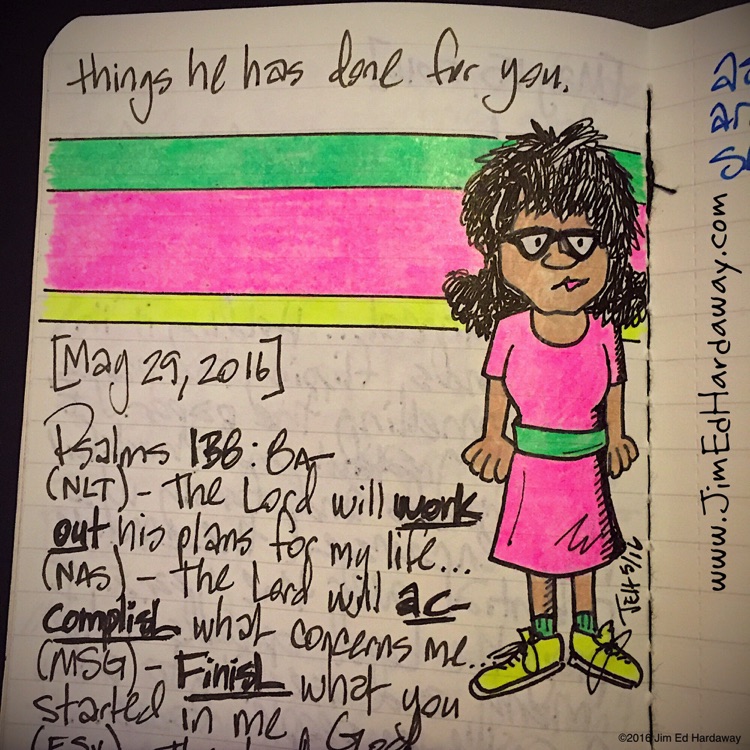 things he has done for you.
[May 29, 2016]
Psalms 138:8a
(NLT) - The Lord will work
out his plans for my life...
(NAS) - The Lord will ac-
complish what concerns me...
(MSG) - Finish what you
started in me God
(ESV)
JEH 5/16
www.JimEdHardaway.com
©2016 Jim Ed Hardaway